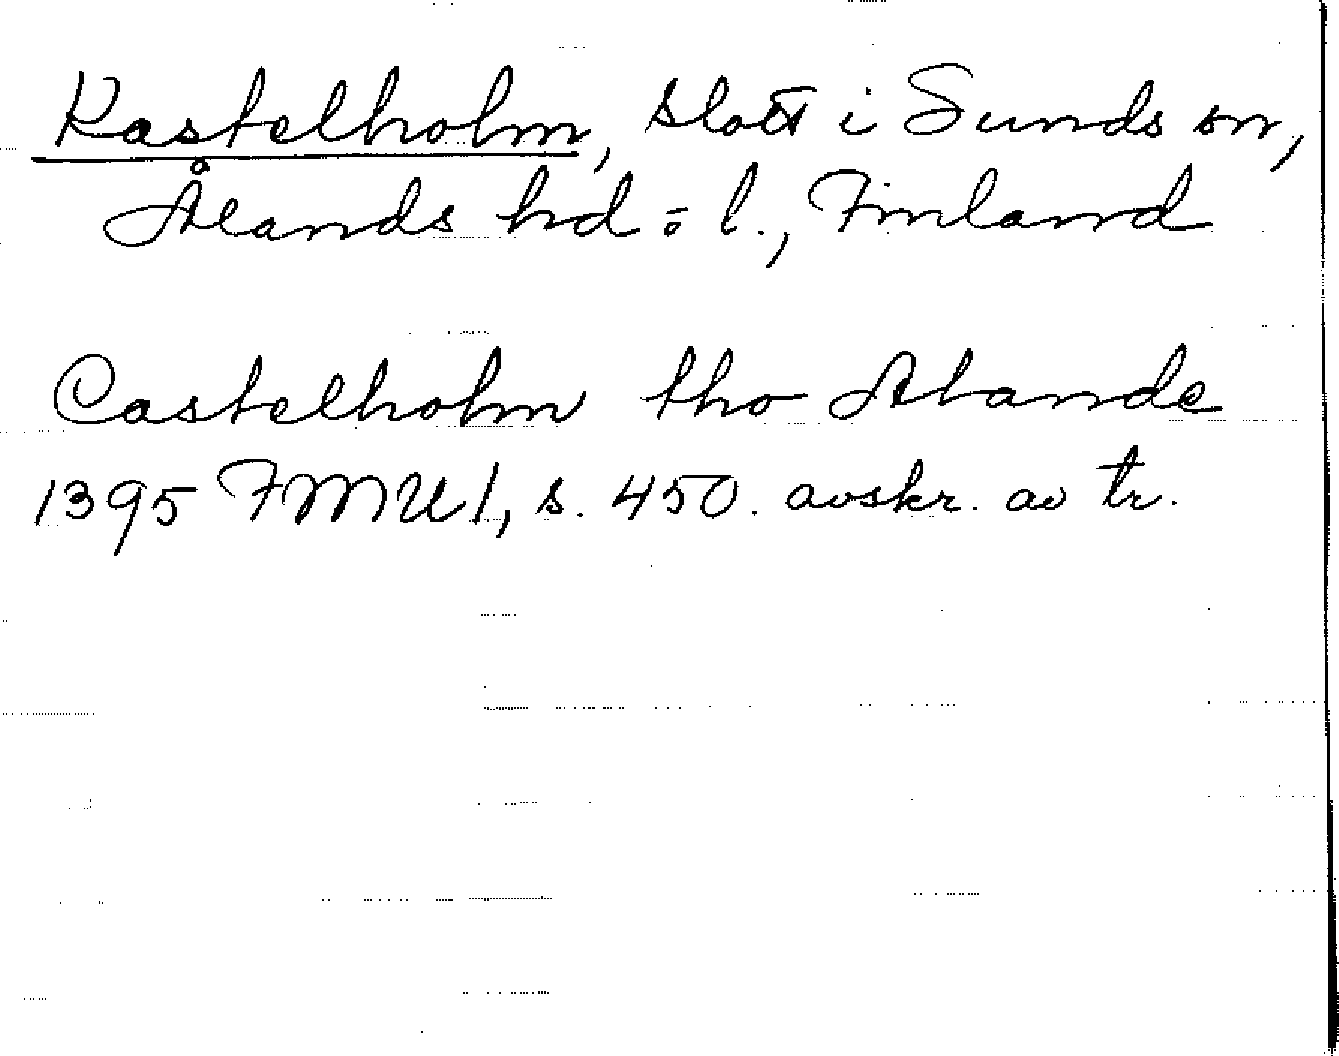 Kastelholm, slott i Sunds sn,
Ålands hd = l., Finland
Castelholm tho Alande
1395 FMU 1, s. 450. avskr. av tr.